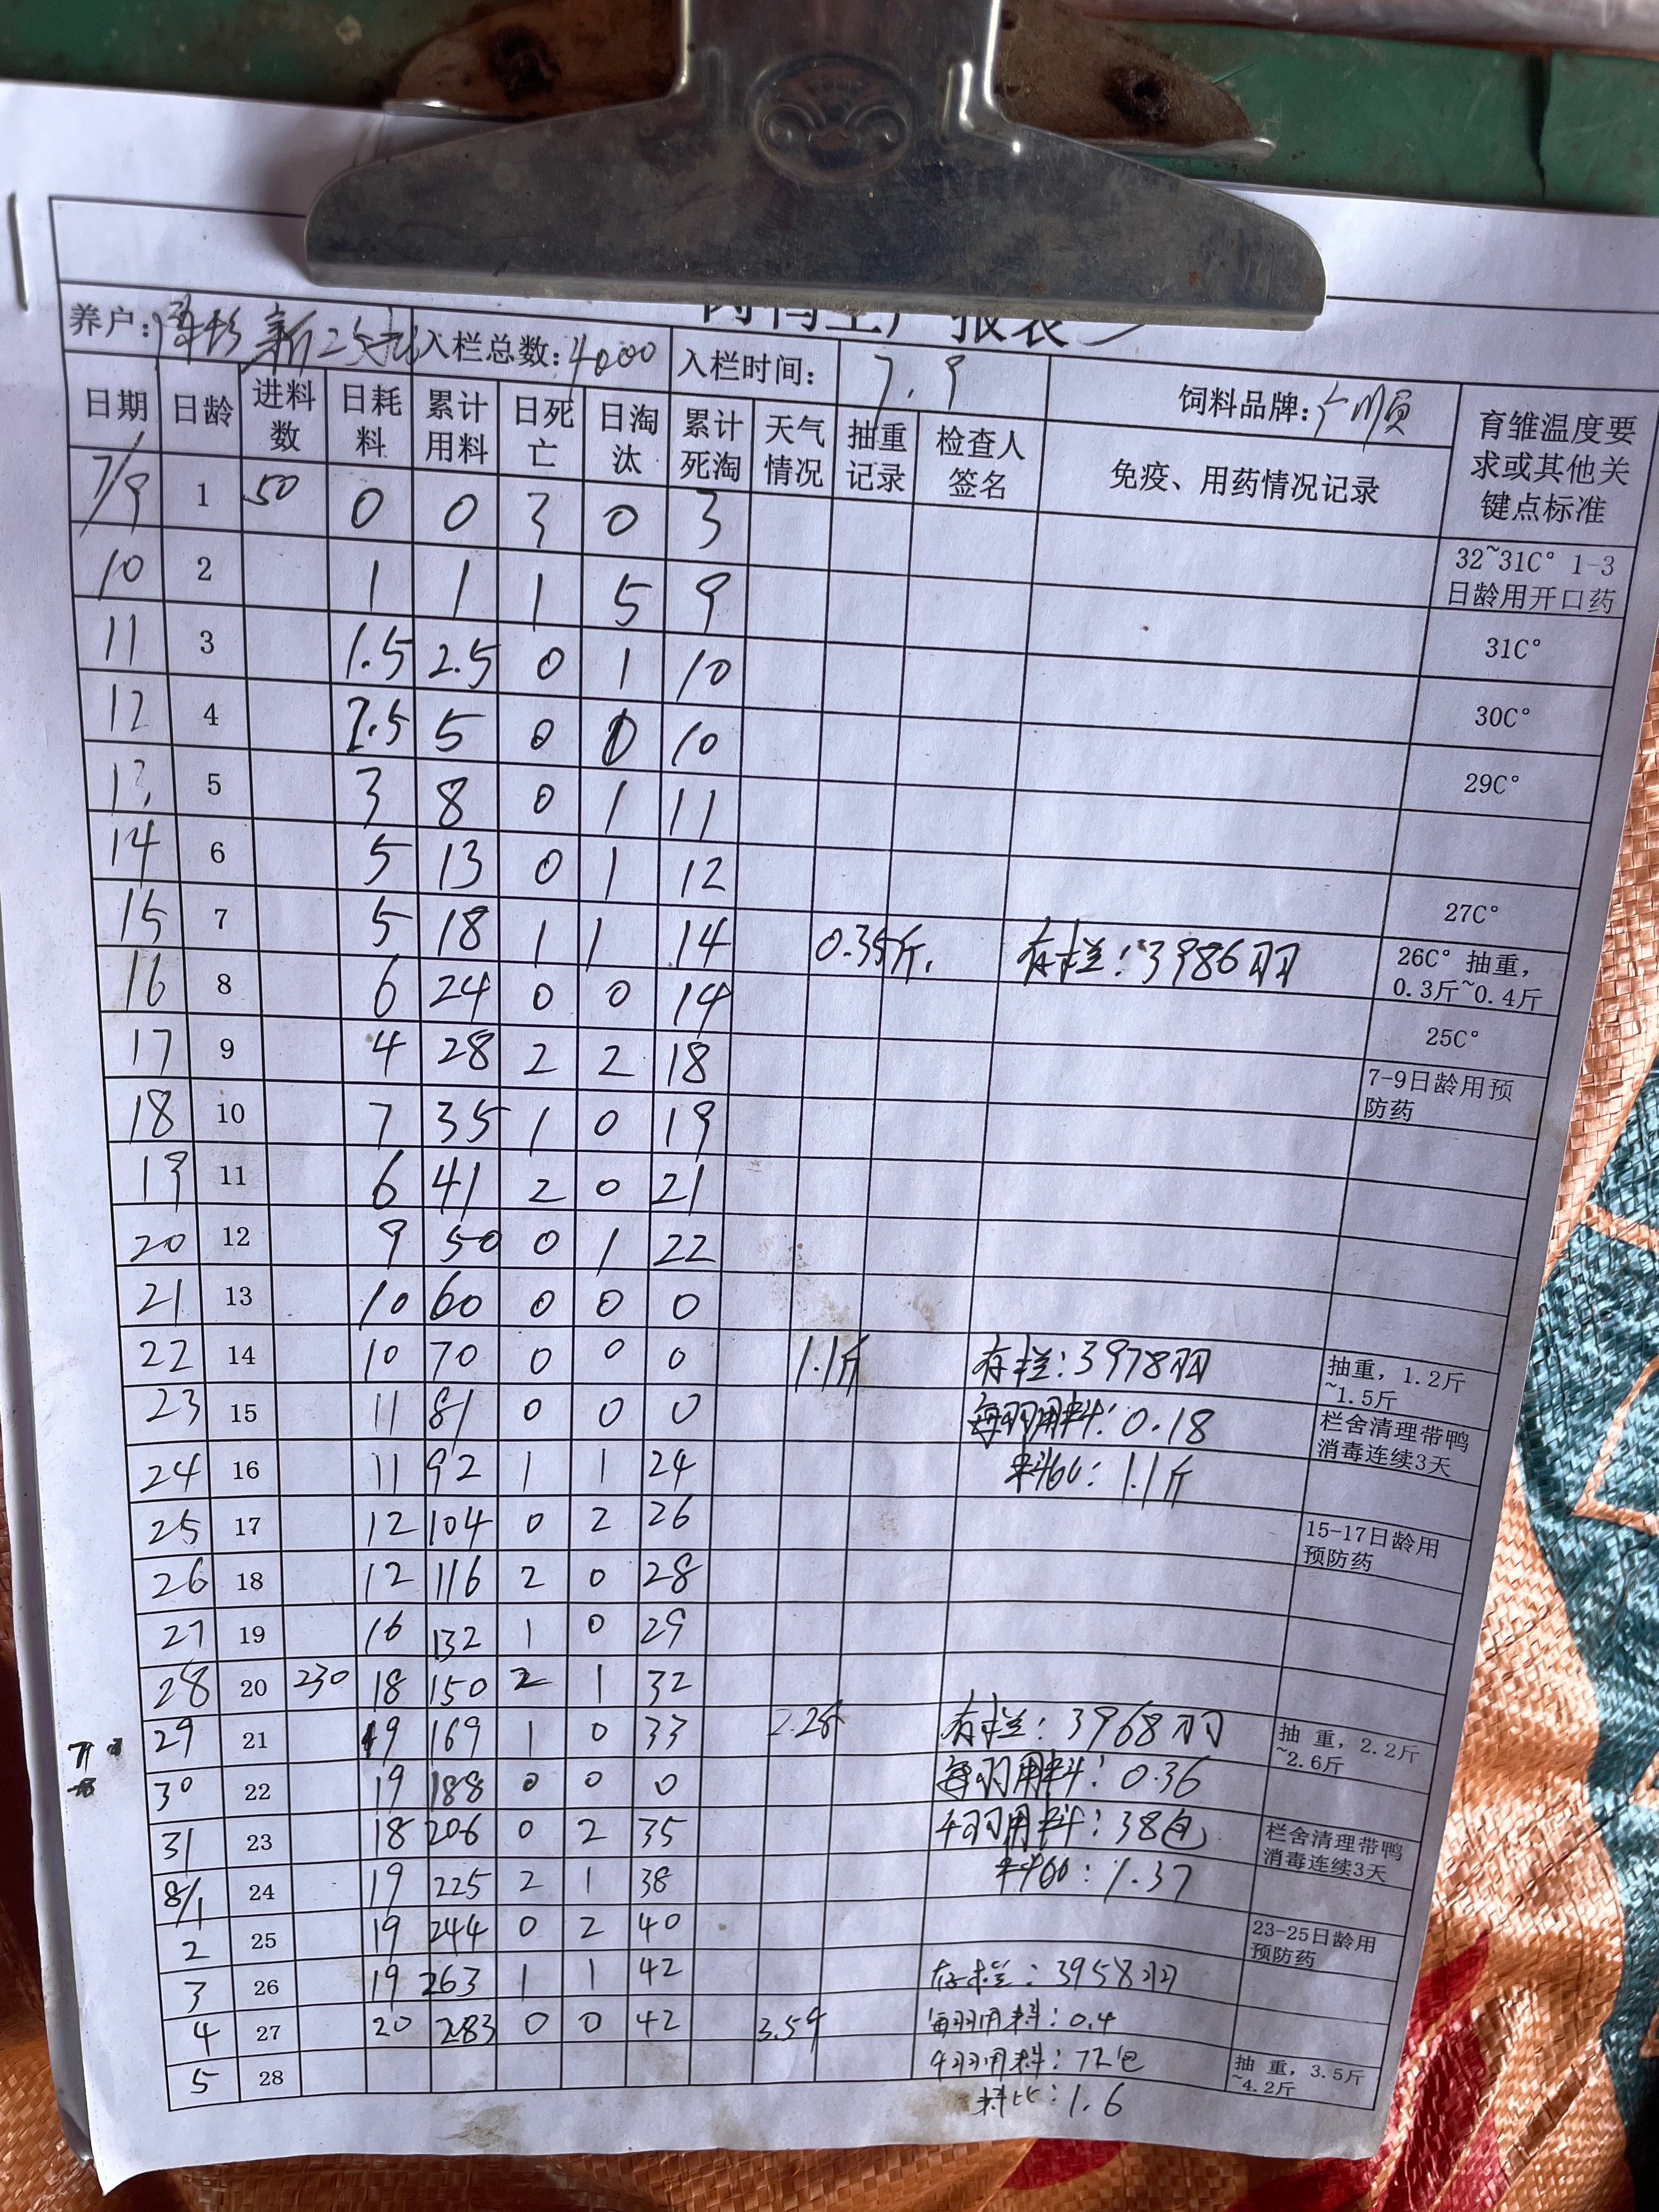 肉鸭生产报表
养户: 新 入栏总数:4000 入栏时间: 7.9 饲料品牌:
日期 日龄 进料数 日耗料 累计用料 日死亡 日淘汰 累计死淘 天气情况 抽重记录 检查人签名 免疫、用药情况记录 育雏温度要求或其他关键点标准
7/9 1 50 0 0 3 0 3 32~31C° 1-3日龄用开口药
10 2 1 1 1 5 9
11 3 1.5 2.5 0 1 10 31C°
12 4 2.5 5 0 0 10 30C°
13 5 3 8 0 1 11 29C°
14 6 5 13 0 1 12
15 7 5 18 1 1 14 0.35斤. 存栏:3986羽 27C°
16 8 6 24 0 0 14 26C° 抽重，0.3斤~0.4斤
17 9 4 28 2 2 18 25C°
18 10 7 35 1 0 19 7-9日龄用预防药
19 11 6 41 2 0 21
20 12 9 50 0 1 22
21 13 10 60 0 0 0
22 14 10 70 0 0 0 1.1斤 存栏:3978羽 抽重，1.2斤~1.5斤
23 15 11 81 0 0 0 每羽用料:0.18 栏舍清理带鸭消毒连续3天
24 16 11 92 1 1 24 料比:1.1斤
25 17 12 104 0 2 26 15-17日龄用预防药
26 18 12 116 2 0 28
27 19 16 132 1 0 29
28 20 230 18 150 2 1 32
29 21 19 169 1 0 33 2.2斤 存栏:3968羽 抽重，2.2斤~2.6斤
30 22 19 188 0 0 0 每羽用料:0.36
31 23 18 206 0 2 35 千羽用料:38包 栏舍清理带鸭消毒连续3天
8/1 24 19 225 2 1 38 料比:1.37
2 25 19 244 0 2 40 23-25日龄用预防药
3 26 19 263 1 1 42 存栏:3958羽
4 27 20 283 0 0 42 3.5斤 每羽用料:0.4
5 28 千羽用料:72包 抽重，3.5斤~4.2斤
料比:1.6